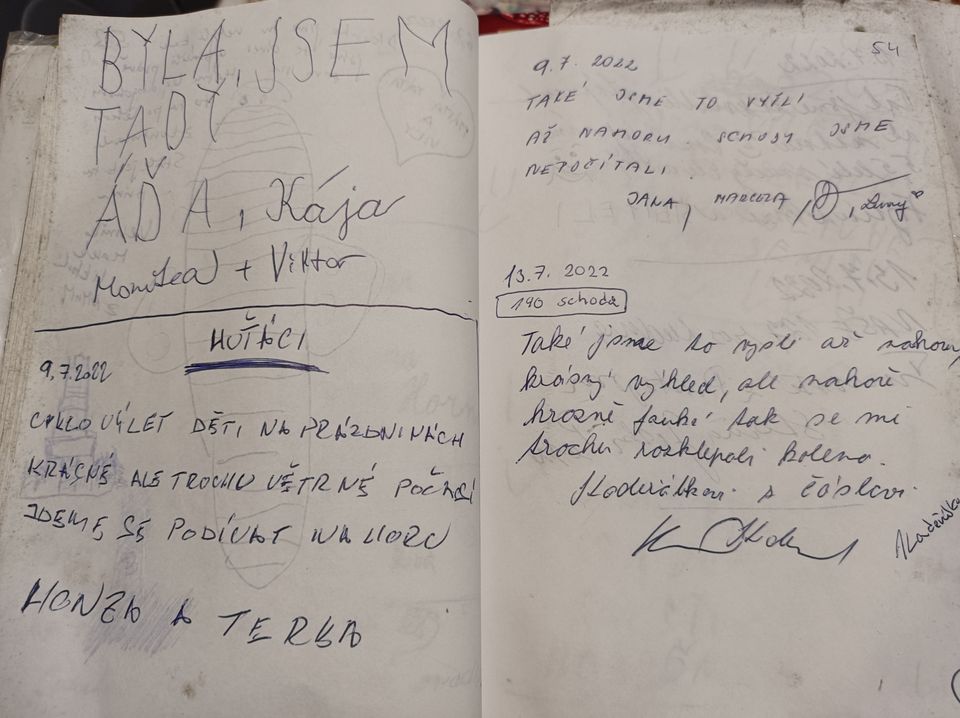 BYLA, JSEM
TADY
ÁĎA, Kája
Monika + Viktor
HUŤÁCI
9.7.2022
CYKLO VÝLET DĚTI NA PRÁZDNINÁCH
KRÁSNÉ ALE TROCHU VĚTRNÉ POČASÍ
JDEME SE PODÍVAT NAHORU
HONZA A TERKA
54
9.7. 2022
TAKÉ JSME TO VYŠLI
AŽ NAHORU. SCHODY JSME
NEPOČÍTALI.
JANA, MARCELA,
13.7. 2022
190 schodů
Také jsme to vyšli až nahoru,
krásný výhled, ale nahoře
hrozně fouká tak se mi
trochu rozklepali kolena.